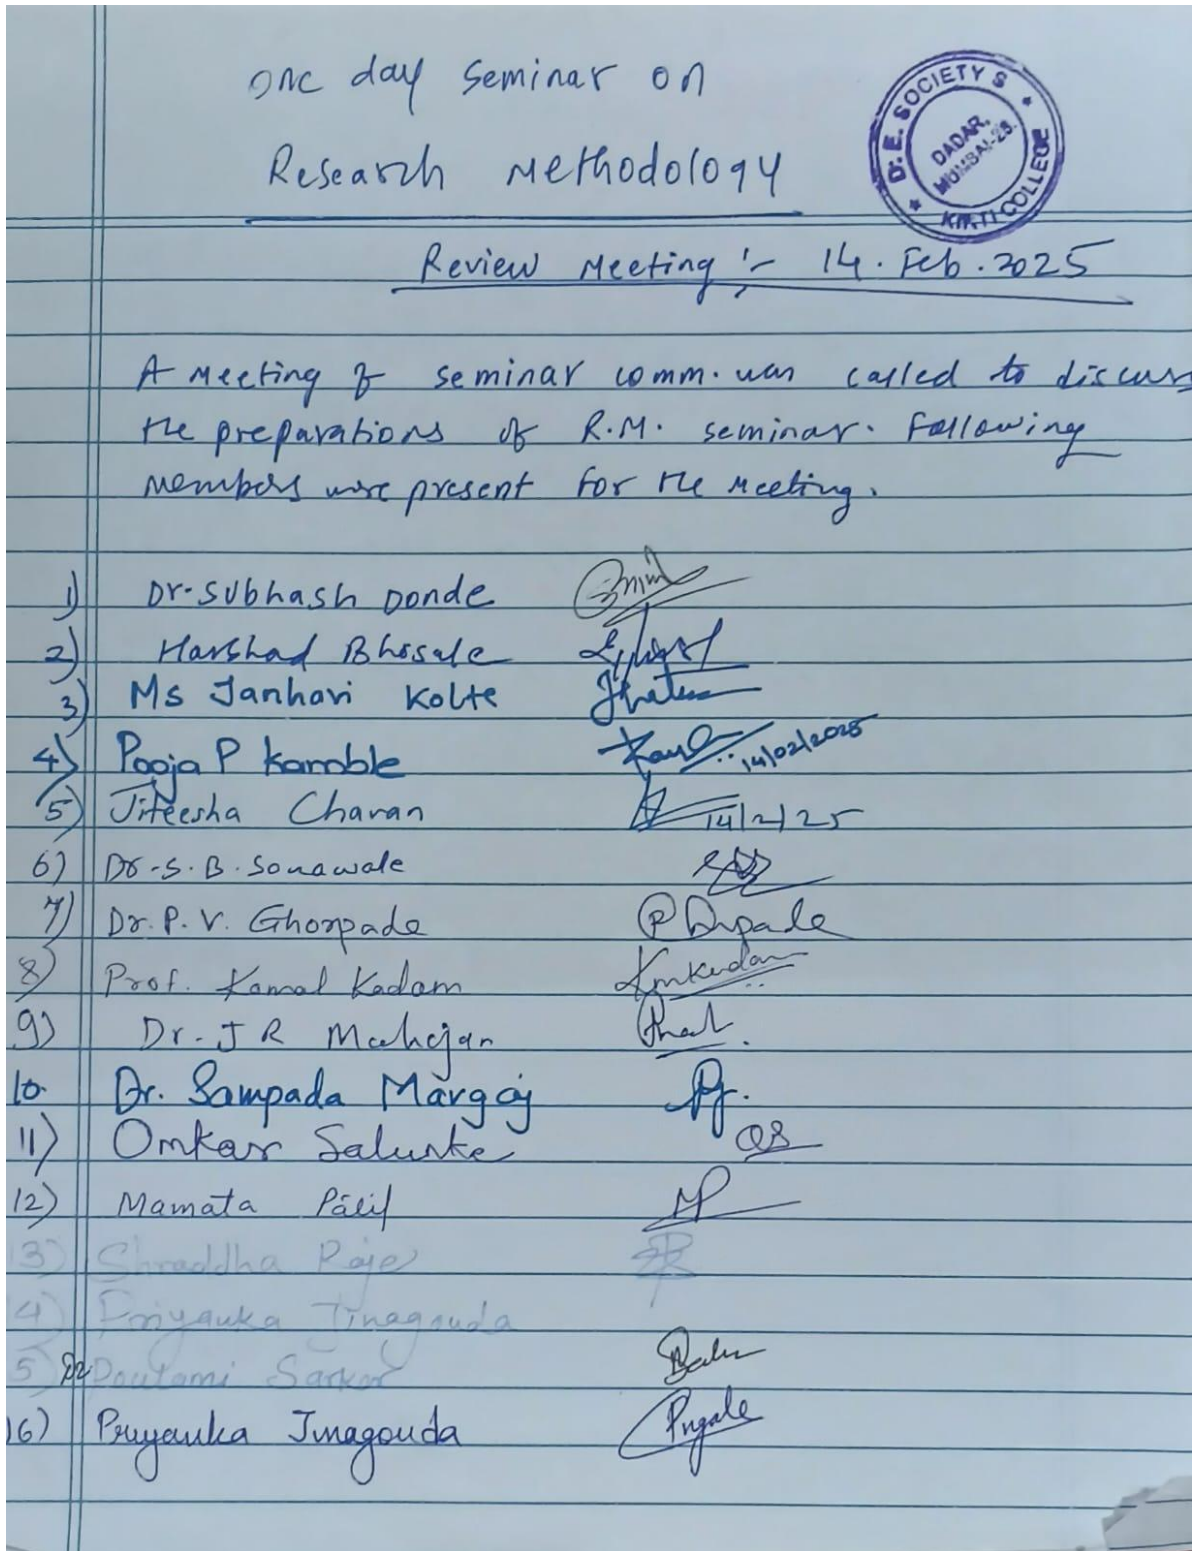 one day seminar on
Research Methodology
D. E. SOCIETY'S
KIRTI COLLEGE
DADAR,
MUMBAI-28.
Review Meeting :- 14. Feb. 2025
A Meeting of seminar comm. was called to discuss
the preparations of R.M. seminar. Following
members were present for the meeting.
1) Dr. Subhash Donde
2) Harshad Bhosale
3) Ms Janhavi Kolte
4) Pooja P Kamble 14/02/2025
5) Jiteesha Chavan 14/2/25
6) Dr. S. B. Sonawale
7) Dr. P. V. Ghorpade
8) Prof. Kamal Kadam Kmkadam
9) Dr. J R Mahajan
10 Dr. Sampada Margaj
11) Omkar Salunke OS
12) Mamata Patil MP
13) Shraddha Raje
14) Priyanka Jinagouda
15) Dr Poulami Sarkar
16) Priyanka Jinagouda